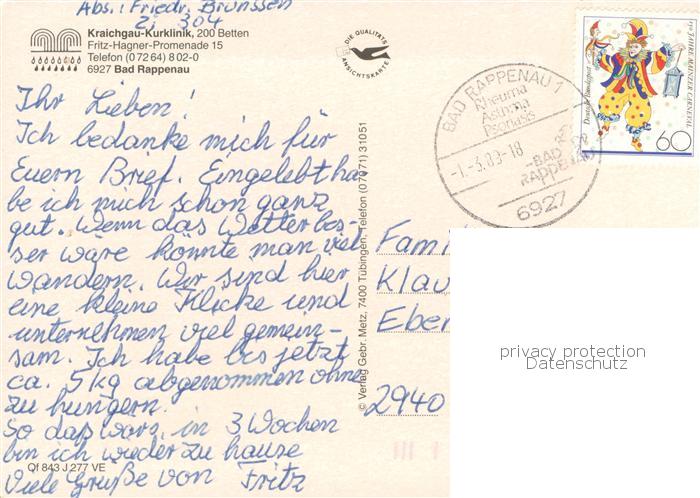 Abs.: Friedr. Brunssen
Zi 304
Kraichgau-Kurklinik, 200 Betten
Fritz-Hagner-Promenade 15
Telefon (0 72 64) 8 02-0
6927 Bad Rappenau
DIE QUALITÄTS
ANSICHTSKARTE
Ihr Lieben!
Ich bedanke mich für
Euern Brief. Eingelebt ha
be ich mich schon ganz
gut. Wenn das Wetter bes-
ser wäre könnte man viel
wandern. Wir sind hier
eine kleine Klicke und
unternehmen viel gemein-
sam. Ich habe bis jetzt
ca. 5 kg abgenommen ohne
zu hungern.
So das wars, in 3 Wochen
bin ich wieder zu hause
Viele Grüße von Fritz
Qf 843 J 277 VE
© Verlag Gebr. Metz, 7400 Tübingen, Telefon (0 70 71) 3 10 51
BAD RAPPENAU 1
Rheuma
Asthma
Psoriasis
-1.-3.89-18
BAD
RAPPENAU
6927
Deutsche Bundespost
150 JAHRE MAINZER CARNEVAL
60
Fami
Klau
Eber
2940
privacy protection
Datenschutz